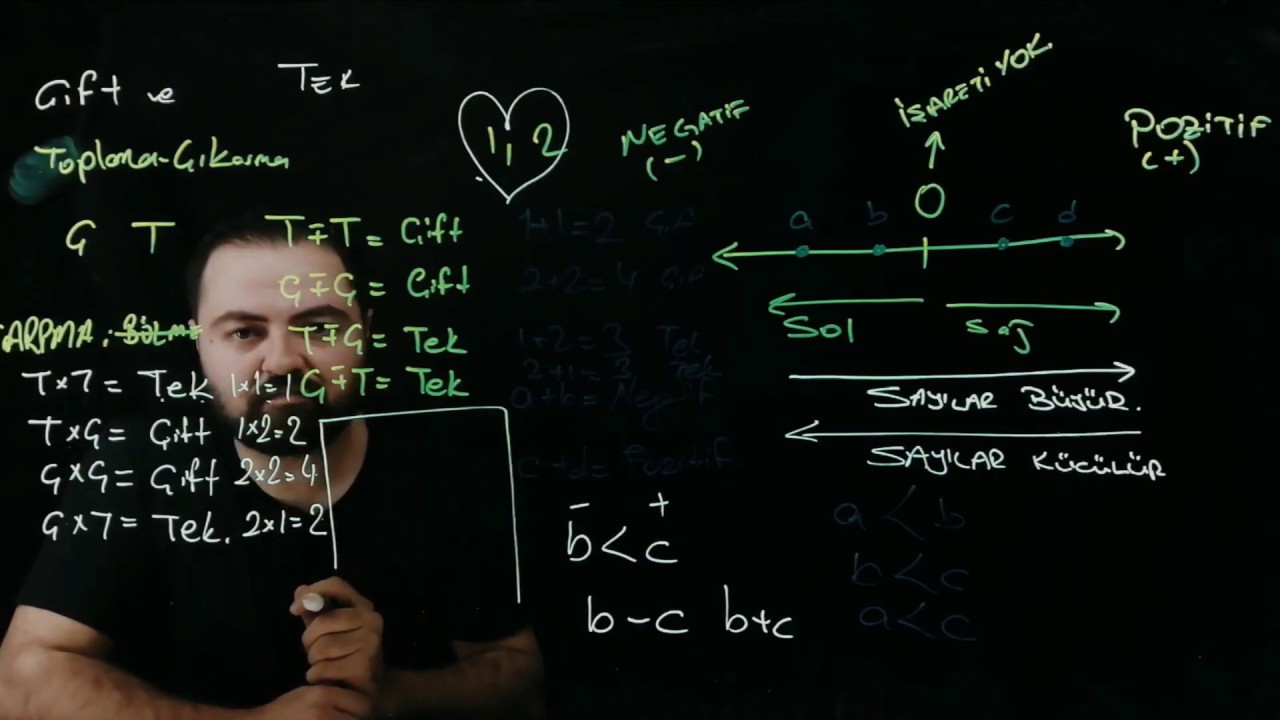 Çift ve Tek
Toplama-Çıkarma
Ç T
T∓T = Çift
Ç∓Ç = Çift
T∓Ç = Tek
Ç∓T = Tek
ÇARPMA; BÖLME
T×T = Tek 1×1=1
T×Ç = Çift 1×2=2
Ç×Ç = Çift 2×2=4
Ç×T = Tek. 2×1=2
1, 2
1+1=2 Çif
2+2=4 Çif
1+2=3 Tek
2+1=3 Tek
a+b= Negatif
c+d= Pozitif
- +
b<c
b-c b+c
NEGATİF
(-)
İŞARETİ YOK.
POZİTİF
(+)
0
a b c d
Sol Sağ
SAYILAR BÜYÜR.
SAYILAR KÜÇÜLÜR
a<b
b<c
a<c